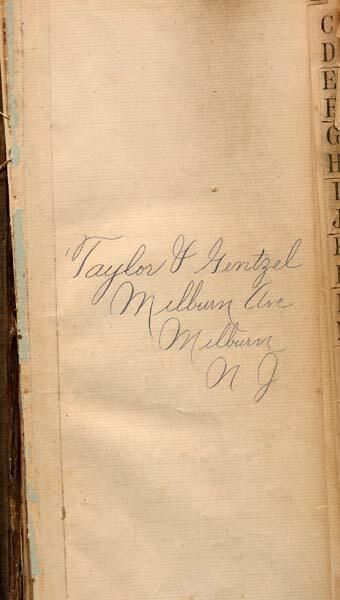 Taylor & Gentzel
Milburn Ave
Milburn
N. J
C
D
E
F
G
H
I
J